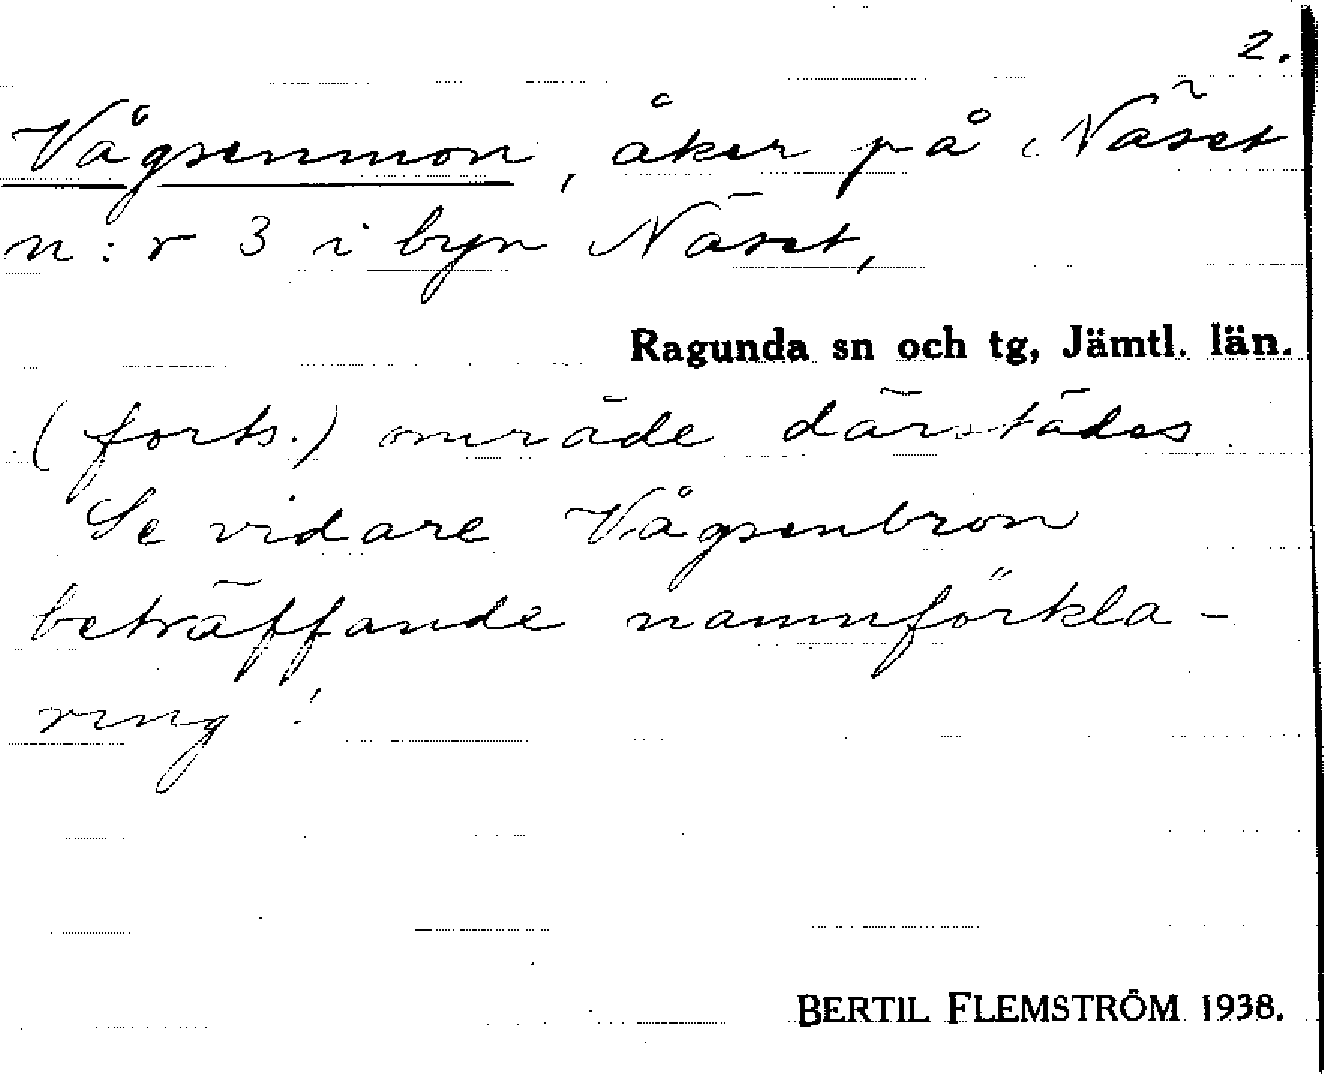 2.
Vågsenmon, åker på Näset
n:r 3 i byn Näset,
Ragunda sn och tg, Jämtl. län.
(forts.) område därstädes
Se vidare Vågsenbron
beträffande namnförkla-
ring!
BERTIL FLEMSTRÖM 1938.